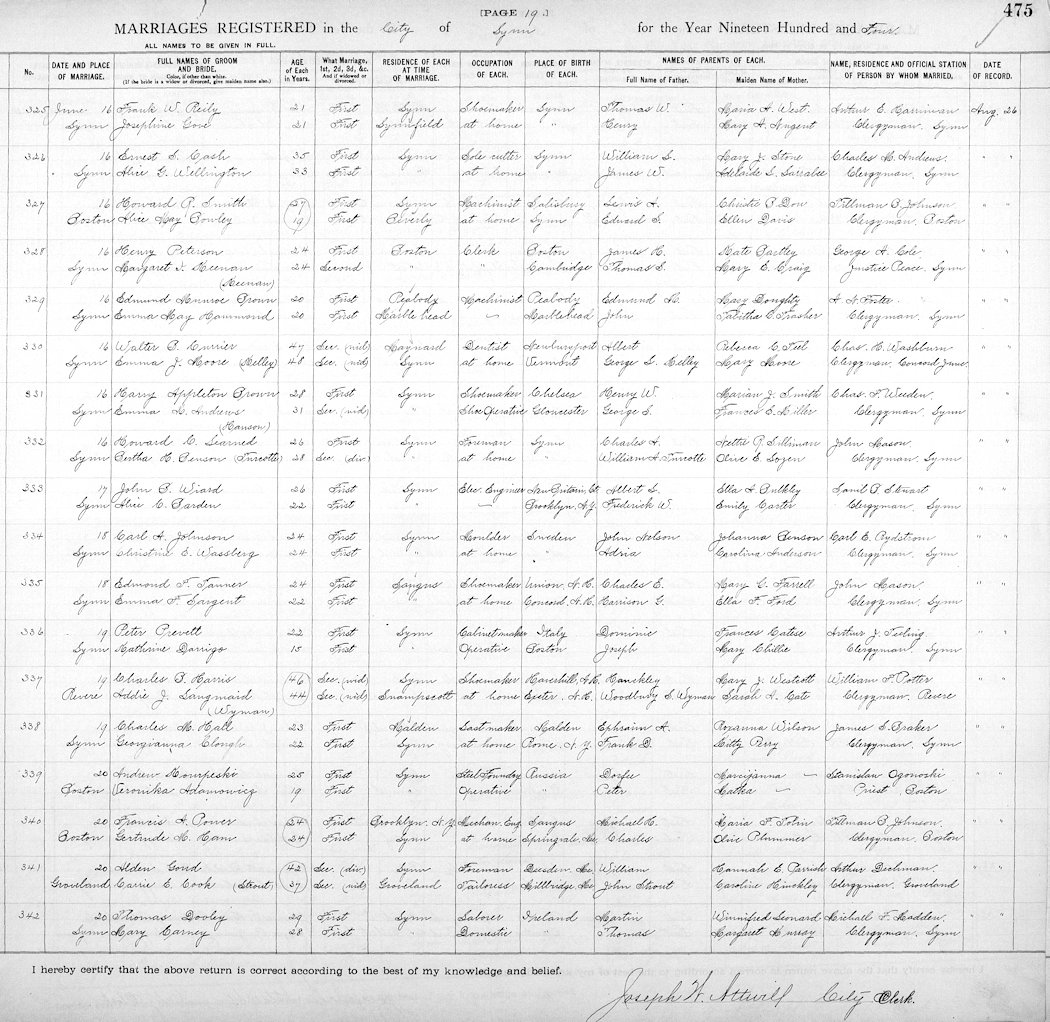 [PAGE 19.]
475
MARRIAGES REGISTERED in the City of Lynn for the Year Nineteen Hundred and Four.
ALL NAMES TO BE GIVEN IN FULL.
No. DATE AND PLACE OF MARRIAGE. FULL NAMES OF GROOM AND BRIDE. Color, if other than white. (If the bride is a widow or divorced, give maiden name also.) AGE of Each in Years. What Marriage, 1st, 2d, 3d, &c. And if widowed or divorced. RESIDENCE OF EACH AT TIME OF MARRIAGE. OCCUPATION OF EACH. PLACE OF BIRTH OF EACH. NAMES OF PARENTS OF EACH. Full Name of Father. Maiden Name of Mother. NAME, RESIDENCE AND OFFICIAL STATION OF PERSON BY WHOM MARRIED. DATE OF RECORD.
325 June 16 Frank W. Reily 21 First Lynn Shoemaker Lynn Thomas W. Maria A. West Arthur E. Harriman Aug. 26
Lynn Josephine Gove 21 First Lynnfield at home " Henry Mary A. Nugent Clergyman, Lynn
326 16 Ernest S. Cash 35 First Lynn Sole cutter Lynn William S. Mary J. Stone Charles M. Andrews " "
Lynn Alice G. Wellington 33 First " at home " James W. Adelaide S. Larrabee Clergyman, Lynn
327 16 Howard P. Smith 27 First Lynn Machinist Salisbury Lewis A. Christie P. Dow Tillman B. Johnson " "
Boston Alice May Cowley 19 First Beverly at home Lynn Edward S. Ellen Davis Clergyman, Boston
328 16 Henry Peterson 24 First Boston Clerk Boston James H. Kate Bartley George A. Cole " "
Lynn Margaret I. Keenan 24 Second " " Cambridge Thomas S. Mary E. Craig Justice Peace, Lynn
(Keenan)
329 16 Edmund Munroe Brown 20 First Peabody Machinist Peabody Edmund Mary Doughty A. N. Foster " "
Lynn Emma May Hammond 20 First Marblehead — Marblehead John Tabitha E. Thrasher Clergyman, Lynn
330 16 Walter B. Currier 47 Sec. (wid) Maynard Dentist Newburyport Albert Rebecca C. Teel Chas. H. Washburn " "
Lynn Emma J. Moore (Kelley) 48 Sec. (wid) Lynn at home Vermont George S. Kelley Mary Moore Clergyman, Concord Junc.
331 16 Harry Appleton Brown 28 First Lynn Shoemaker Chelsea Henry W. Marian J. Smith Chas. F. Weeden " "
Lynn Emma L. Andrews 31 Sec. (wid) " Shoe Operative Gloucester George S. Frances E. Miller Clergyman, Lynn
(Hanson)
332 16 Howard C. Learned 26 First Lynn Foreman Lynn Charles A. Nettie P. Silliman John Mason " "
Lynn Bertha H. Benson (Turcotte) 28 Sec. (div) " at home " William A. Turcotte Olive E. Clergyman, Lynn
333 17 John B. Wiard 26 First Lynn Elec. Engineer New Britain, Ct. Albert S. Ella A. Bulkley Saml B. Stewart " "
Lynn Alice C. Barden 22 First " — Brooklyn, N.Y. Frederick W. Emily Carter Clergyman, Lynn
334 18 Carl A. Johnson 24 First Lynn Moulder Sweden John Nelson Johanna Benson Carl E. Rydstrom " "
Lynn Christine E. Wassberg 24 First " at home " Adria Carolina Anderson Clergyman, Lynn
335 18 Edmond F. Tanner 24 First Saugus Shoemaker Vernon, N.H. Charles E. Mary C. Farrell John Mason " "
Lynn Emma F. Sargent 22 First " at home Concord, N.H. Harrison G. Ella F. Ford Clergyman, Lynn
336 19 Peter Prevett 22 First Lynn Cabinet maker Italy Dominic Frances Catese Arthur J. Teeling " "
Lynn Katherine Darrigo 15 First " Operative Boston Joseph Mary Chillie Clergyman, Lynn
337 19 Charles B. Harris 46 Sec. (wid) Lynn Shoemaker Haverhill, N.H. Hanckley Mary J. Westcott William F. Potter " "
Revere Addie J. Langmaid 44 Sec. (wid) Swampscott at home Exeter, N.H. Woodbury S. Wyman Sarah A. Cate Clergyman, Revere
(Wyman)
338 19 Charles M. Hall 23 First Malden Last maker Malden Ephraim A. Roxanna Wilson James L. Braker " "
Lynn Georgianna Clough 22 First Lynn at home Rome, N.Y. Frank D. Kitty Perry Clergyman, Lynn
339 20 Andrew Kourpeski 25 First Lynn Steel Foundry Russia Dorfee Marcijanna — Stanislaw Ogonoski " "
Boston Veronika Adamowicz 19 First " Operative " Peter Malka — Priest, Boston
340 20 Francis A. Power 24 First Brooklyn, N.Y. Mechan. Eng. Saugus Michael H. Maria F. Tobin Tillman B. Johnson " "
Boston Gertrude M. Ham 24 First Lynn at home Springvale, Me. Charles Olive Plummer Clergyman, Boston
341 20 Alden Goud 42 Sec. (div) Lynn Foreman Dresden, Me. William Hannah E. Parrish Arthur Dechman " "
Groveland Carrie E. Cook (Strout) 37 Sec. (wid) Groveland Tailoress Millbridge, Me. John Strout Caroline Hinckley Clergyman, Groveland
342 20 Thomas Dooley 29 First Lynn Laborer Ireland Martin Winnifred Leonard Michael F. Madden " "
Lynn Mary Carney 28 First " Domestic " Thomas Margaret Murray Clergyman, Lynn
I hereby certify that the above return is correct according to the best of my knowledge and belief.
Joseph W. Attwill City Clerk.